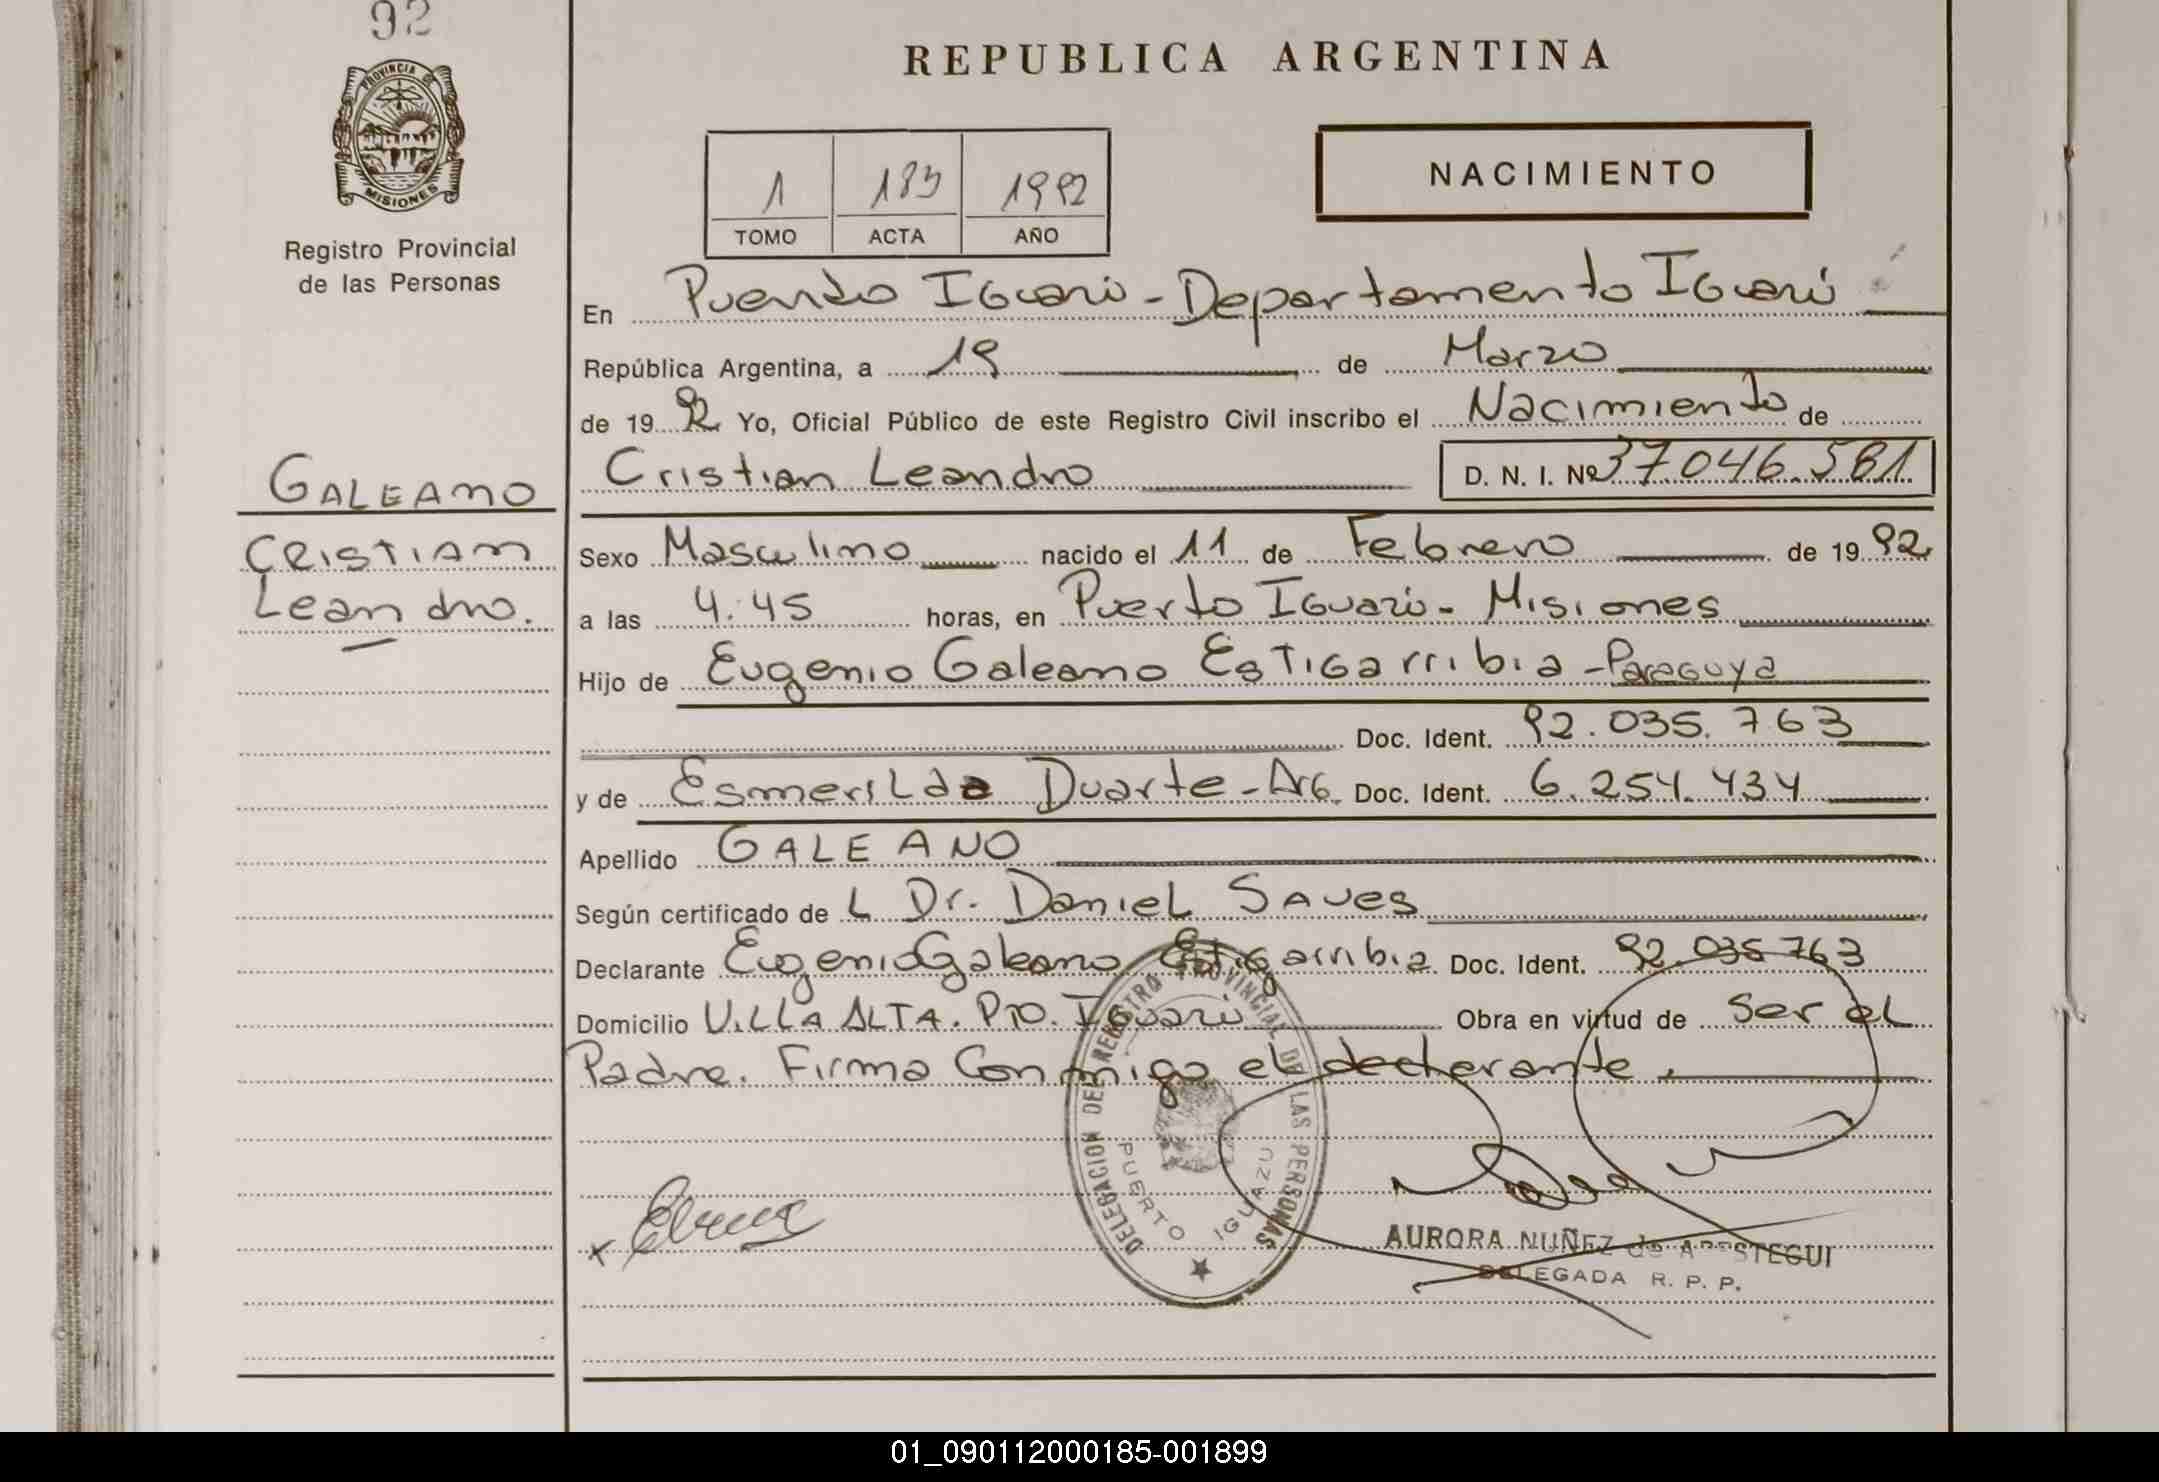 92
REPUBLICA ARGENTINA
PROVINCIA DE
MISIONES
Registro Provincial
de las Personas
NACIMIENTO
1 183 1992
TOMO ACTA AÑO
En Puerto Iguazú - Departamento Iguazú
República Argentina, a 19 de Marzo
de 1992 Yo, Oficial Público de este Registro Civil inscribo el Nacimiento de
GALEANO
CRISTIAN
Leandro.
Cristian Leandro D. N. I. Nº 37.046.581
Sexo Masculino nacido el 11 de Febrero de 1992
a las 4:45 horas, en Puerto Iguazú - Misiones
Hijo de Eugenio Galeano Estigarribia - Paraguya
Doc. Ident. 92.035.763
y de Esmerilda Duarte - Arg. Doc. Ident. 6.254.434
Apellido GALEANO
Según certificado de L Dr. Daniel
Declarante Eugenio Galeano Estigarribia Doc. Ident. 92.035.763
Domicilio VILLA ALTA. Pto. Iguazú Obra en virtud de Ser el
Padre. Firma Conmigo el declarante.
DELEGACION DEL REGISTRO PROVINCIAL DE LAS PERSONAS
PUERTO IGUAZU
AURORA NUÑEZ de ARESTEGUI
DELEGADA R. P. P.
01_090112000185-001899